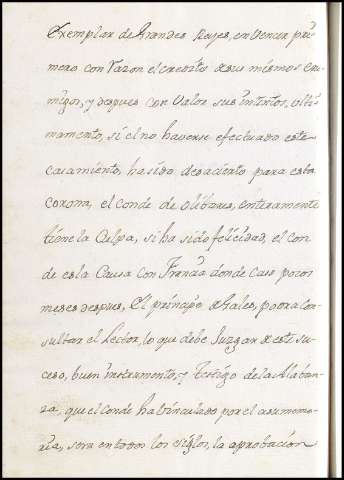 Exemplar de Grandes Reyes, en Vencer pri
mero con Razon el credito de sus mismos ene
migos, y despues con Valor sus intentos, ulti
mamento, si el no haverse efectuado este
casamiento, ha sido desacierto para esta
corona, el conde de olibares, enteramente
tiene la Culpa, si ha sido felicidad, el con
de es la Causa con Francia donde caso pocos
meses despues, El principe de Gales, podra con
sultar el Lector, lo que debe Juzgar de este su
ceso, buen instrumento, y Testigo de la Alaban
za, que el conde ha binculado por el a su memo
ria, sera en todos los siglos, la aprobacion